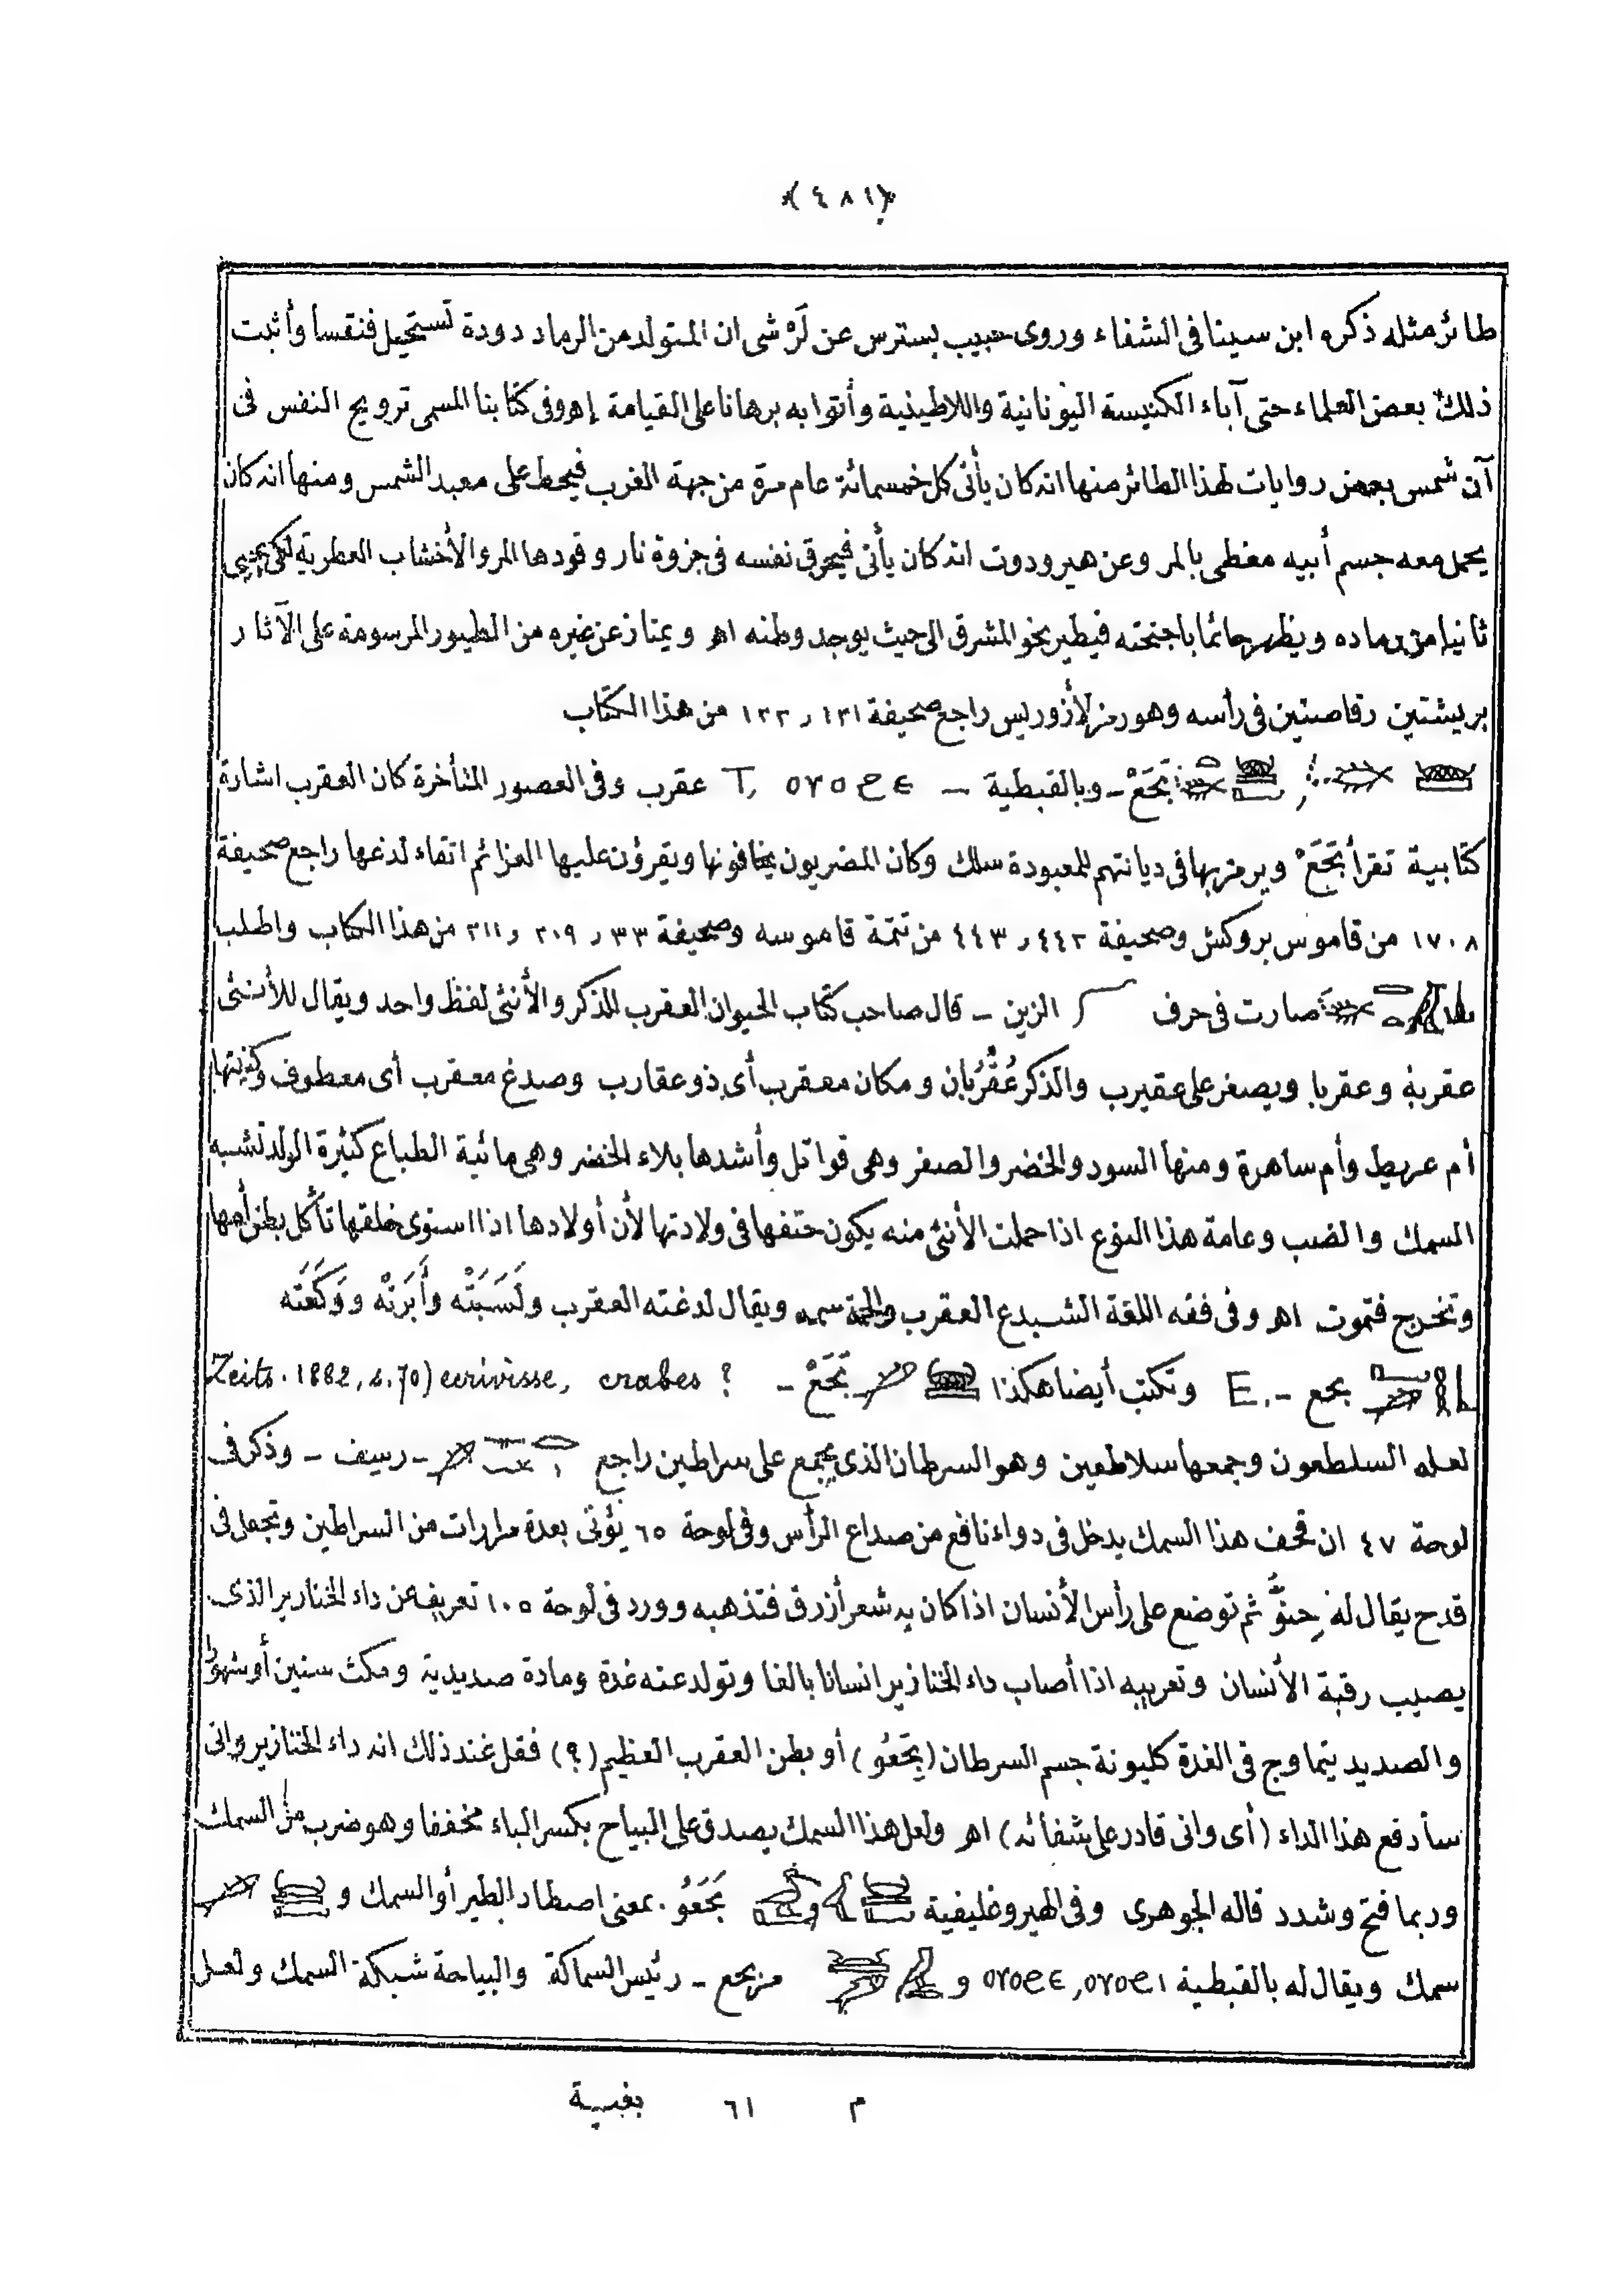 ﴿٤٨١﴾
طائر مثله ذكره ابن سينا فى الشفاء وروى حبيب بسترس عن لَرْشى ان المتولد من الرماد دودة تستحيل فنقسا وأثبت
ذلك بعض العلماء حتى آباء الكنيسة اليونانية واللاطينية وأتوا به برهانا على القيامة إهـ وفى كتابنا المسمى ترويح النفس فى
آن شمس بعض روايات لهذا الطائر منها انه كان يأتى كل خمسمائة عام مرة من جهة الغرب فيحط على معبد الشمس ومنها انه كان
يحمل معه جسم أبيه مغطى بالمر وعن هيرودوت انه كان يأتى فيحرق نفسه فى جزوة نار وقودها المر والأخشاب العطرية لكى
ثانيا من رماده ويظهر حائما باجنحته فيطير نحو المشرق الى حيث يوجد وطنه اهـ ويمتاز عن غيره من الطيور المرسومة على الآثار
بريشتين رقاصتين فى رأسه وهو رمز لأزوريس راجع صحيفة ١٣١ ر ١٣٢ من هذا الكتاب
تَجَعْ - وبالقبطية — T, ⲟⲩⲟϩⲉ عقرب وفى العصور المتأخرة كان العقرب اشارة
كتابية تقرأ بَجَعْ ويرمز بها فى ديانتهم للمعبودة سلك وكان المصريون يخافونها ويقرؤن عليها العزائم اتقاء لدغها راجع صحيفة
١٧٠٨ من قاموس بروكش وصحيفة ٤٤٢ ر ٤٤٣ من تتمة قاموسه وصحيفة ٣٣ ر ٢٠٩ ر ٢١١ من هذا الكتاب واطلب
صارت فى حرف الزين - قال صاحب كتاب الحيوان العقرب للذكر والأنثى لفظ واحد ويقال للأنثى
عقربة وعقربا ويصغر على عقيرب والذكر عُقْرُبان ومكان معقرب أى ذو عقارب وصدغ معقرب أى معطوف وكنيتها
أم عريط وأم ساهرة ومنها السود والخضر والصفر وهى قواتل وأشدها بلاء الخضر وهى مائية الطباع كثيرة الولد تشبه
السمك والضب وعامة هذا النوع اذا حملت الأنثى منه يكون حتفها فى ولادتها لأن أولادها اذا استوى خلقها تأكل بطن أمها
وتخرج فتموت اهـ وفى فقه اللغة الشبدع العقرب والحمة سمه ويقال لدغته العقرب ولَسَبَتْه وأَبَرَتْه ووَكَعَتْه
بجع -. E وتكتب أيضا هكذا بَجَعْ - Zeits. 1882, s. 70) ecrivisse, crabes ?
لعله السلطعون وجمعها سلاطعين وهو السرطان الذى يجمع على سراطين راجع - رسيف - وذكر فى
لوحة ٤٧ ان قحف هذا السمك يدخل فى دواء نافع من صداع الرأس وفى لوحة ٦٥ يؤتى بعدة مرارات من السراطين وتجعل فى
قدح يقال له حِنوّ ثم توضع على رأس الأنسان اذا كان به شعر أزرق فتذهبه وورد فى لوحة ١٠٥ تعريف عن داء الخنازير الذى
يصيب رقبة الأنسان وتعريبه اذا أصاب داء الخنازير انسانا بالغا وتولد عنه غدة ومادة صديدية ومكث سنين أو شهورا
والصديد يتماوج فى الغدة كليونة جسم السرطان (بَجَعُو) أو بطن العقرب العظيم (؟) فقل عند ذلك انه داء الخنازير وانى
سأدفع هذا الداء (أى وانى قادر على شفائه) اهـ ولعل هذا السمك يصدق على البياح بكسر الباء مخففا وهو ضرب من السمك
وربما فتح وشدد قاله الجوهرى وفى الهيروغليفية بَجَعُو. بمعنى اصطاد الطير أو السمك و
سمك ويقال له بالقبطية ⲟⲩⲟϩⲉ, ⲟⲩⲟϩⲓ و مربجع - رئيس السماكة والبياحة شبكة السمك ولعل
م ٦١ بغية